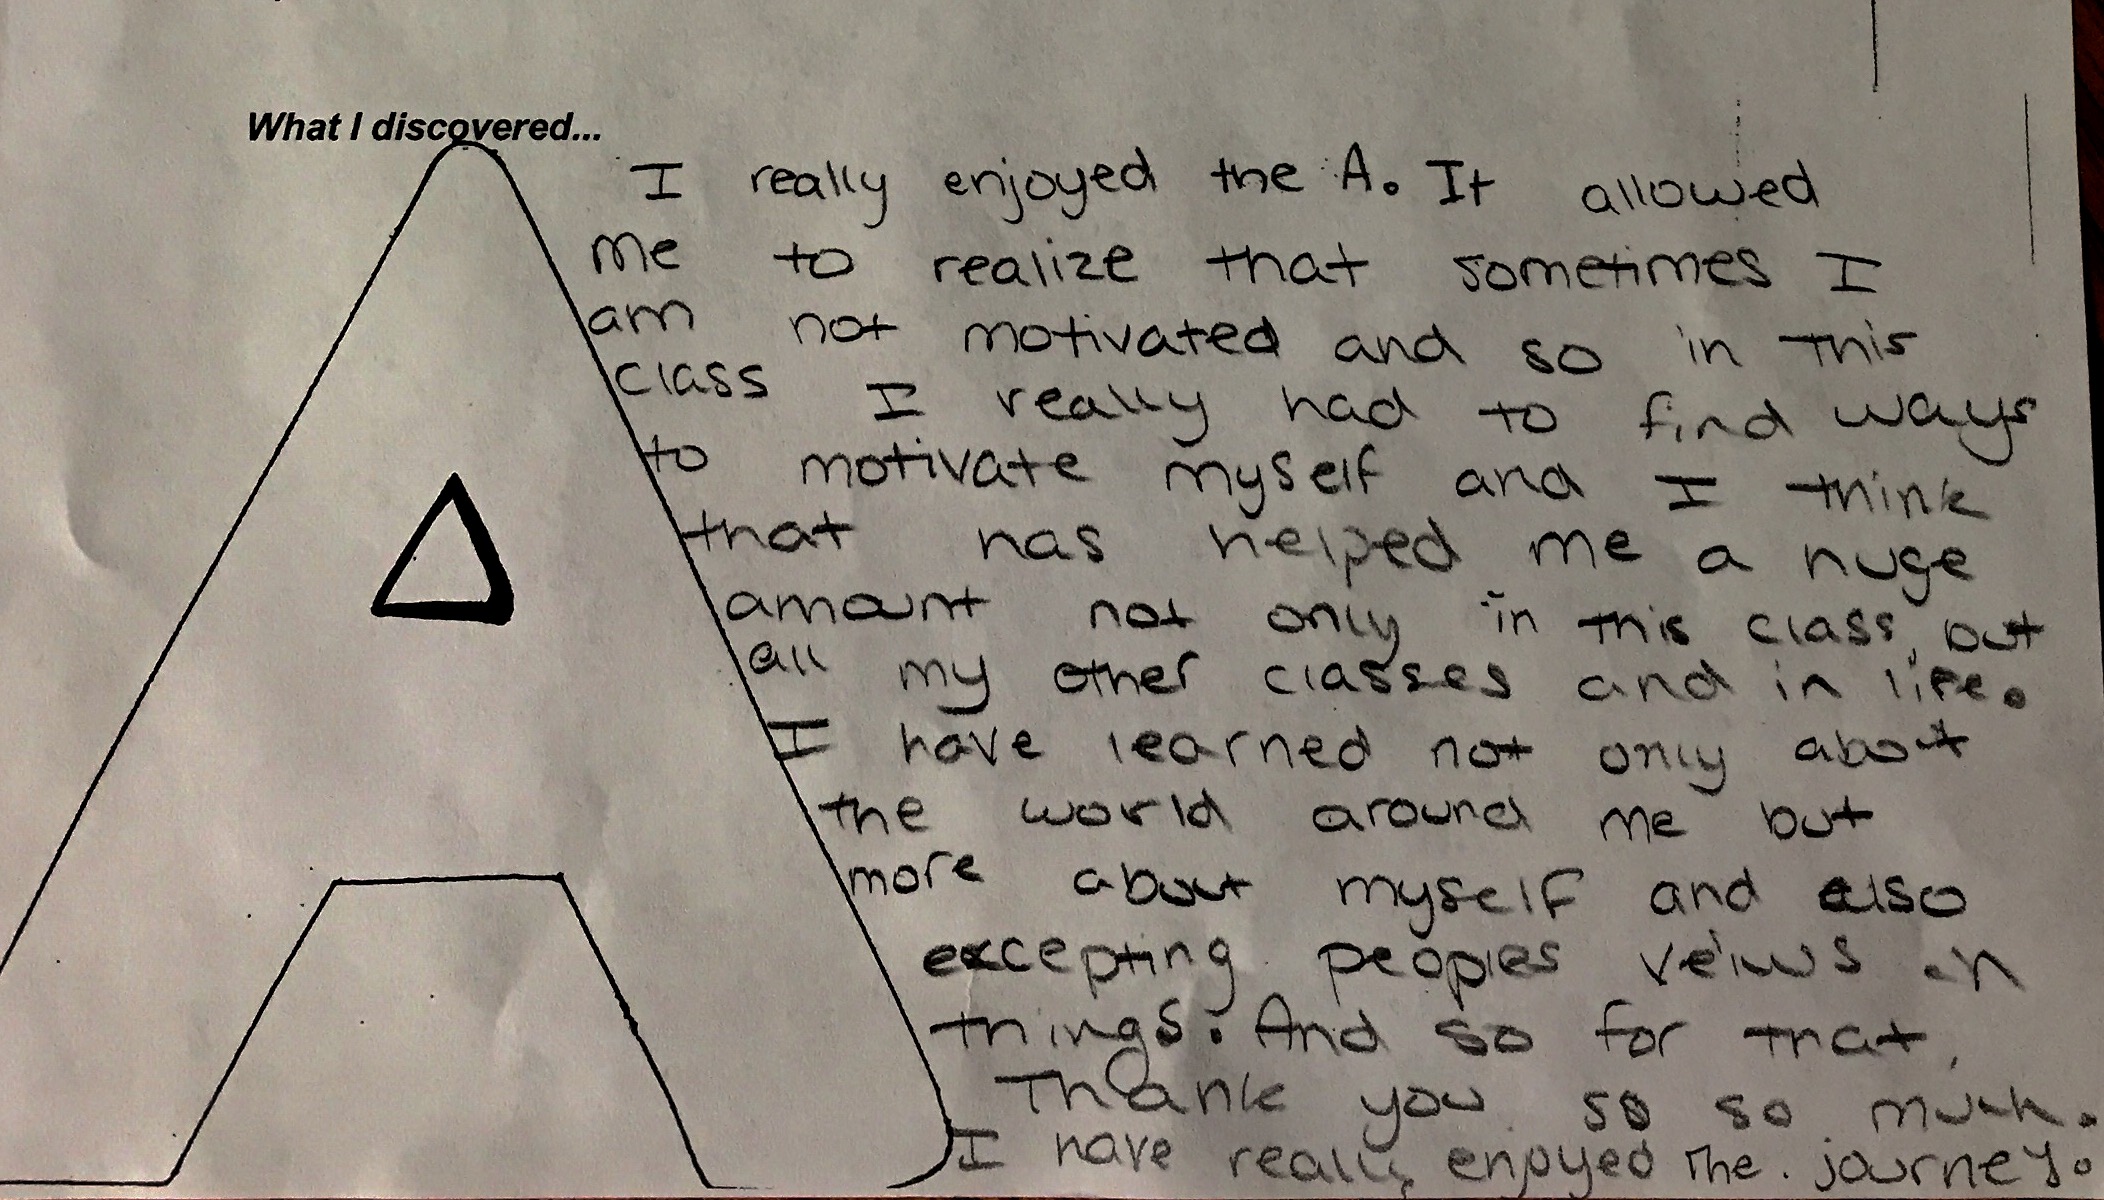 What I discovered...
I really enjoyed the A. It allowed
me to realize that sometimes I
am not motivated and so in this
class I really had to find ways
to motivate myself and I think
that has helped me a huge
amount not only in this class, but
all my other classes and in life.
I have learned not only about
the world around me but
more about myself and also
excepting peoples veiws on
things. And so for that,
Thank you so so much.
I have really enjoyed the journey.